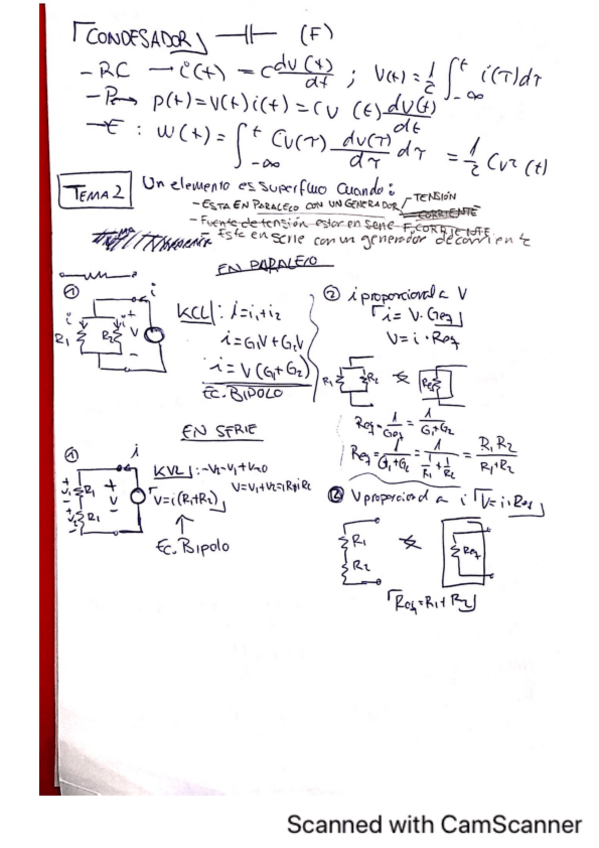 CONDESADOR (F)
- RC → i(t) = C dv(t)/dt ; V(t) = 1/2 ∫_{-∞}^{t} i(τ)dτ
- P → p(t) = V(t) i(t) = CV(t) dV(t)/dt
→ E : W(t) = ∫_{-∞}^{t} CV(τ) dv(τ)/dτ dτ = 1/2 CV²(t)
TEMA 2 Un elemento es superfluo cuando:
- ESTA EN PARALELO CON UN GENERADOR TENSIÓN
CORRIENTE
- Fuente de tensión estar en serie F. CORRIENTE
- Este en serie con un generador de corriente
EN PARALELO
① i
i i R1 R2 + V -
KCL : i = i1 + i2
i = G1V + G2V
i = V(G1 + G2)
EC. BIPOLO
② i proporcional a V
i = V · Geq
V = i · Req
R1 R2 Req
Req = 1/Geq = 1/(G1+G2)
Req = 1/(G1+G2) = 1/(1/R1 + 1/R2) = R1R2/(R1+R2)
EN SERIE
① i
+ V1 - R1 + V - + V2 - R1
KVL : -V2 - V1 + V = 0
V = V1 + V2 = iR1 + iR2
V = i(R1+R2)
↑
Ec. Bipolo
② V proporcional a i V = i · Req
R1
R2
Req
Req = R1 + R2
Scanned with CamScanner